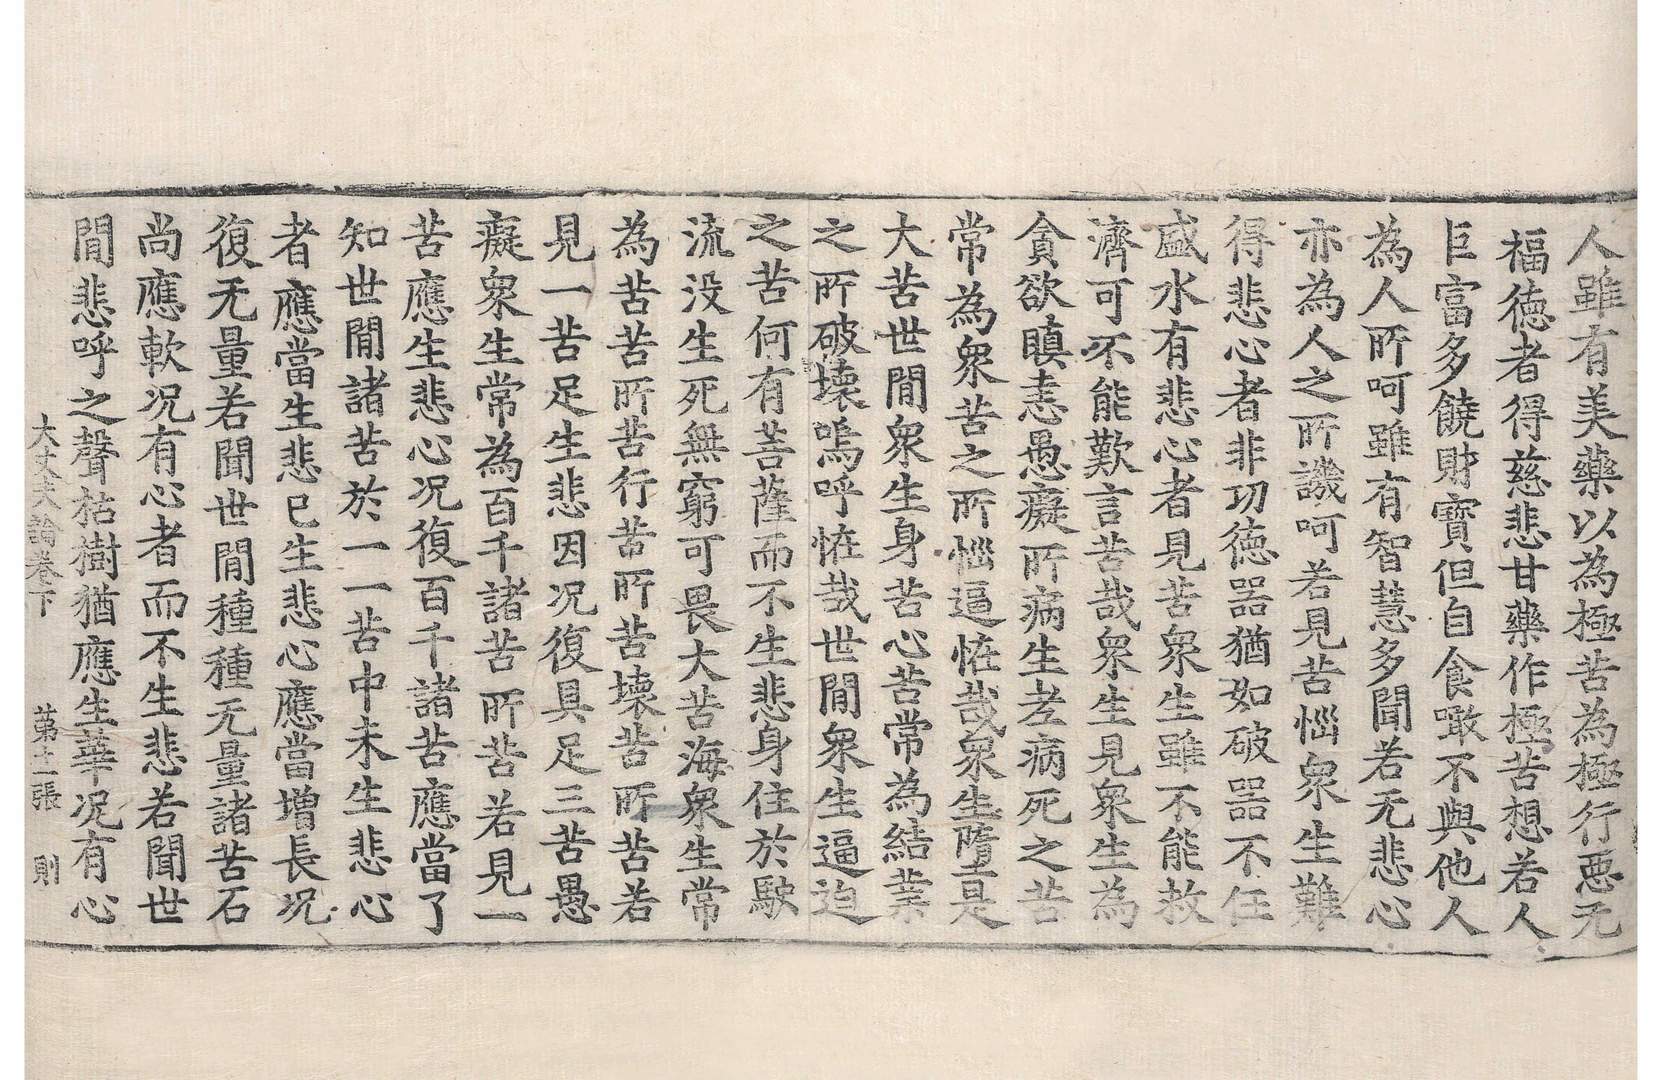 人雖有美藥以為極苦為極行惡无
福德者得慈悲甘藥作極苦想若人
巨富多饒財寶但自食噉不與他人
為人所呵雖有智慧多聞若无悲心
亦為人之所譏呵若見苦惱衆生難
得悲心者非功德器猶如破器不任
盛水有悲心者見苦衆生雖不能救
濟可不能歎言苦哉衆生見衆生為
貪欲瞋恚愚癡所病生老病死之苦
常為衆苦之所惱逼恠哉衆生墮是
大苦世閒衆生身苦心苦常為結業
之所破壞嗚呼恠哉世閒衆生逼迫
之苦何有菩薩而不生悲身住於駛
流没生死無窮可畏大苦海衆生常
為苦苦所苦行苦所苦壞苦所苦若
見一苦足生悲因况復具足三苦愚
癡衆生常為百千諸苦所苦若見一
苦應生悲心况復百千諸苦應當了
知世閒諸苦於一一苦中未生悲心
者應當生悲已生悲心應當增長况
復无量若聞世閒種種无量諸苦石
尚應軟况有心者而不生悲若聞世
閒悲呼之聲枯樹猶應生華况有心
大丈夫論卷下 第十二張 則